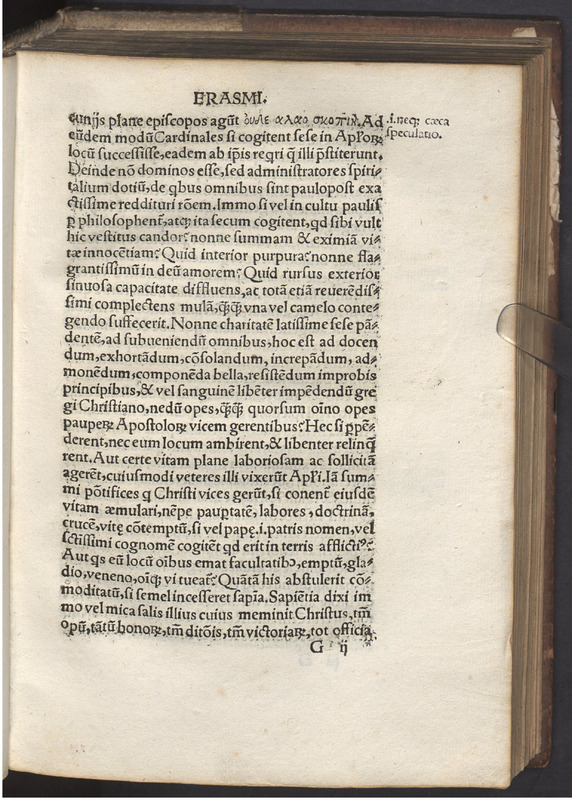 ERASMI.
cunijs plane episcopos agũt ὀυδε αλαο σκοπιή. Ad
eũdem modũ Cardinales si cogitent sese in Aplorꝝ
locũ successisse, eadem ab ip̃is reqri q̃ illi p̃stiterunt.
Deinde nõ dominos esse, sed administratores spiri⸗
talium dotiũ, de qbus omnibus sint paulopost exa
ctissime reddituri rõem. Immo si vel in cultu paulis
ꝑ philosophent̃, atqꝫ ita secum cogitent, qd sibi vult
hic vestitus candor? nonne summam & eximiã vi⸗
tæ innocẽtiam? Quid interior purpura? nonne fla⸗
grantissimũ in deũ amorem? Quid rursus exterior
sinuosa capacitate diffluens, ac totã etiã reuerẽdis⸗
simi complectens mulã, q̃qꝫ vna vel camelo conte⸗
gendo suffecerit. Nonne charitatẽ latissime sese pã⸗
dentẽ, ad subueniendũ omnibus, hoc est ad docen
dum, exhortãdum, cõsolandum, increpãdum, ad⸗
monẽdum, componẽda bella, resistẽdum improbis
principibus, & vel sanguinẽ libẽter impẽdendũ gre
gi Christiano, nedũ opes, q̃qꝫ quorsum oĩno opes
pauperꝝ Apostolorꝝ vicem gerentibus? Hec si ꝑpẽ⸗
derent, nec eum locum ambirent, & libenter relinq̃
rent. Aut certe vitam plane laboriosam ac sollicitã
agerẽt, cuiusmodi veteres illi vixerũt Apli. Iã sum⸗
mi põtifices q Christi vices gerũt, si conent̃ eiusdẽ
vitam æmulari, nẽpe pauꝑtatẽ, labores, doctrinã,
crucẽ, vitę cõtemptũ, si vel papę .i. patris nomen, vel
sctĩssimi cognomẽ cogitẽt qd erit in terris afflicti⁹?
Aut qs eũ locũ oĩbus emat facultatib⁹, emptũ, gla⸗
dio, veneno, oĩqꝫ vi tueat̃? Quãtã his abstulerit cõ⸗
moditatũ, si semel incesseret sapĩa. Sapiẽtia dixi im
mo vel mica salis illius cuius meminit Christus, tm̃
opũ, tãtũ honorꝝ, tm̃ ditõis, tm̃ victoriarꝝ, tot officia
.i. neqꝫ cæca
speculatio.
G ij